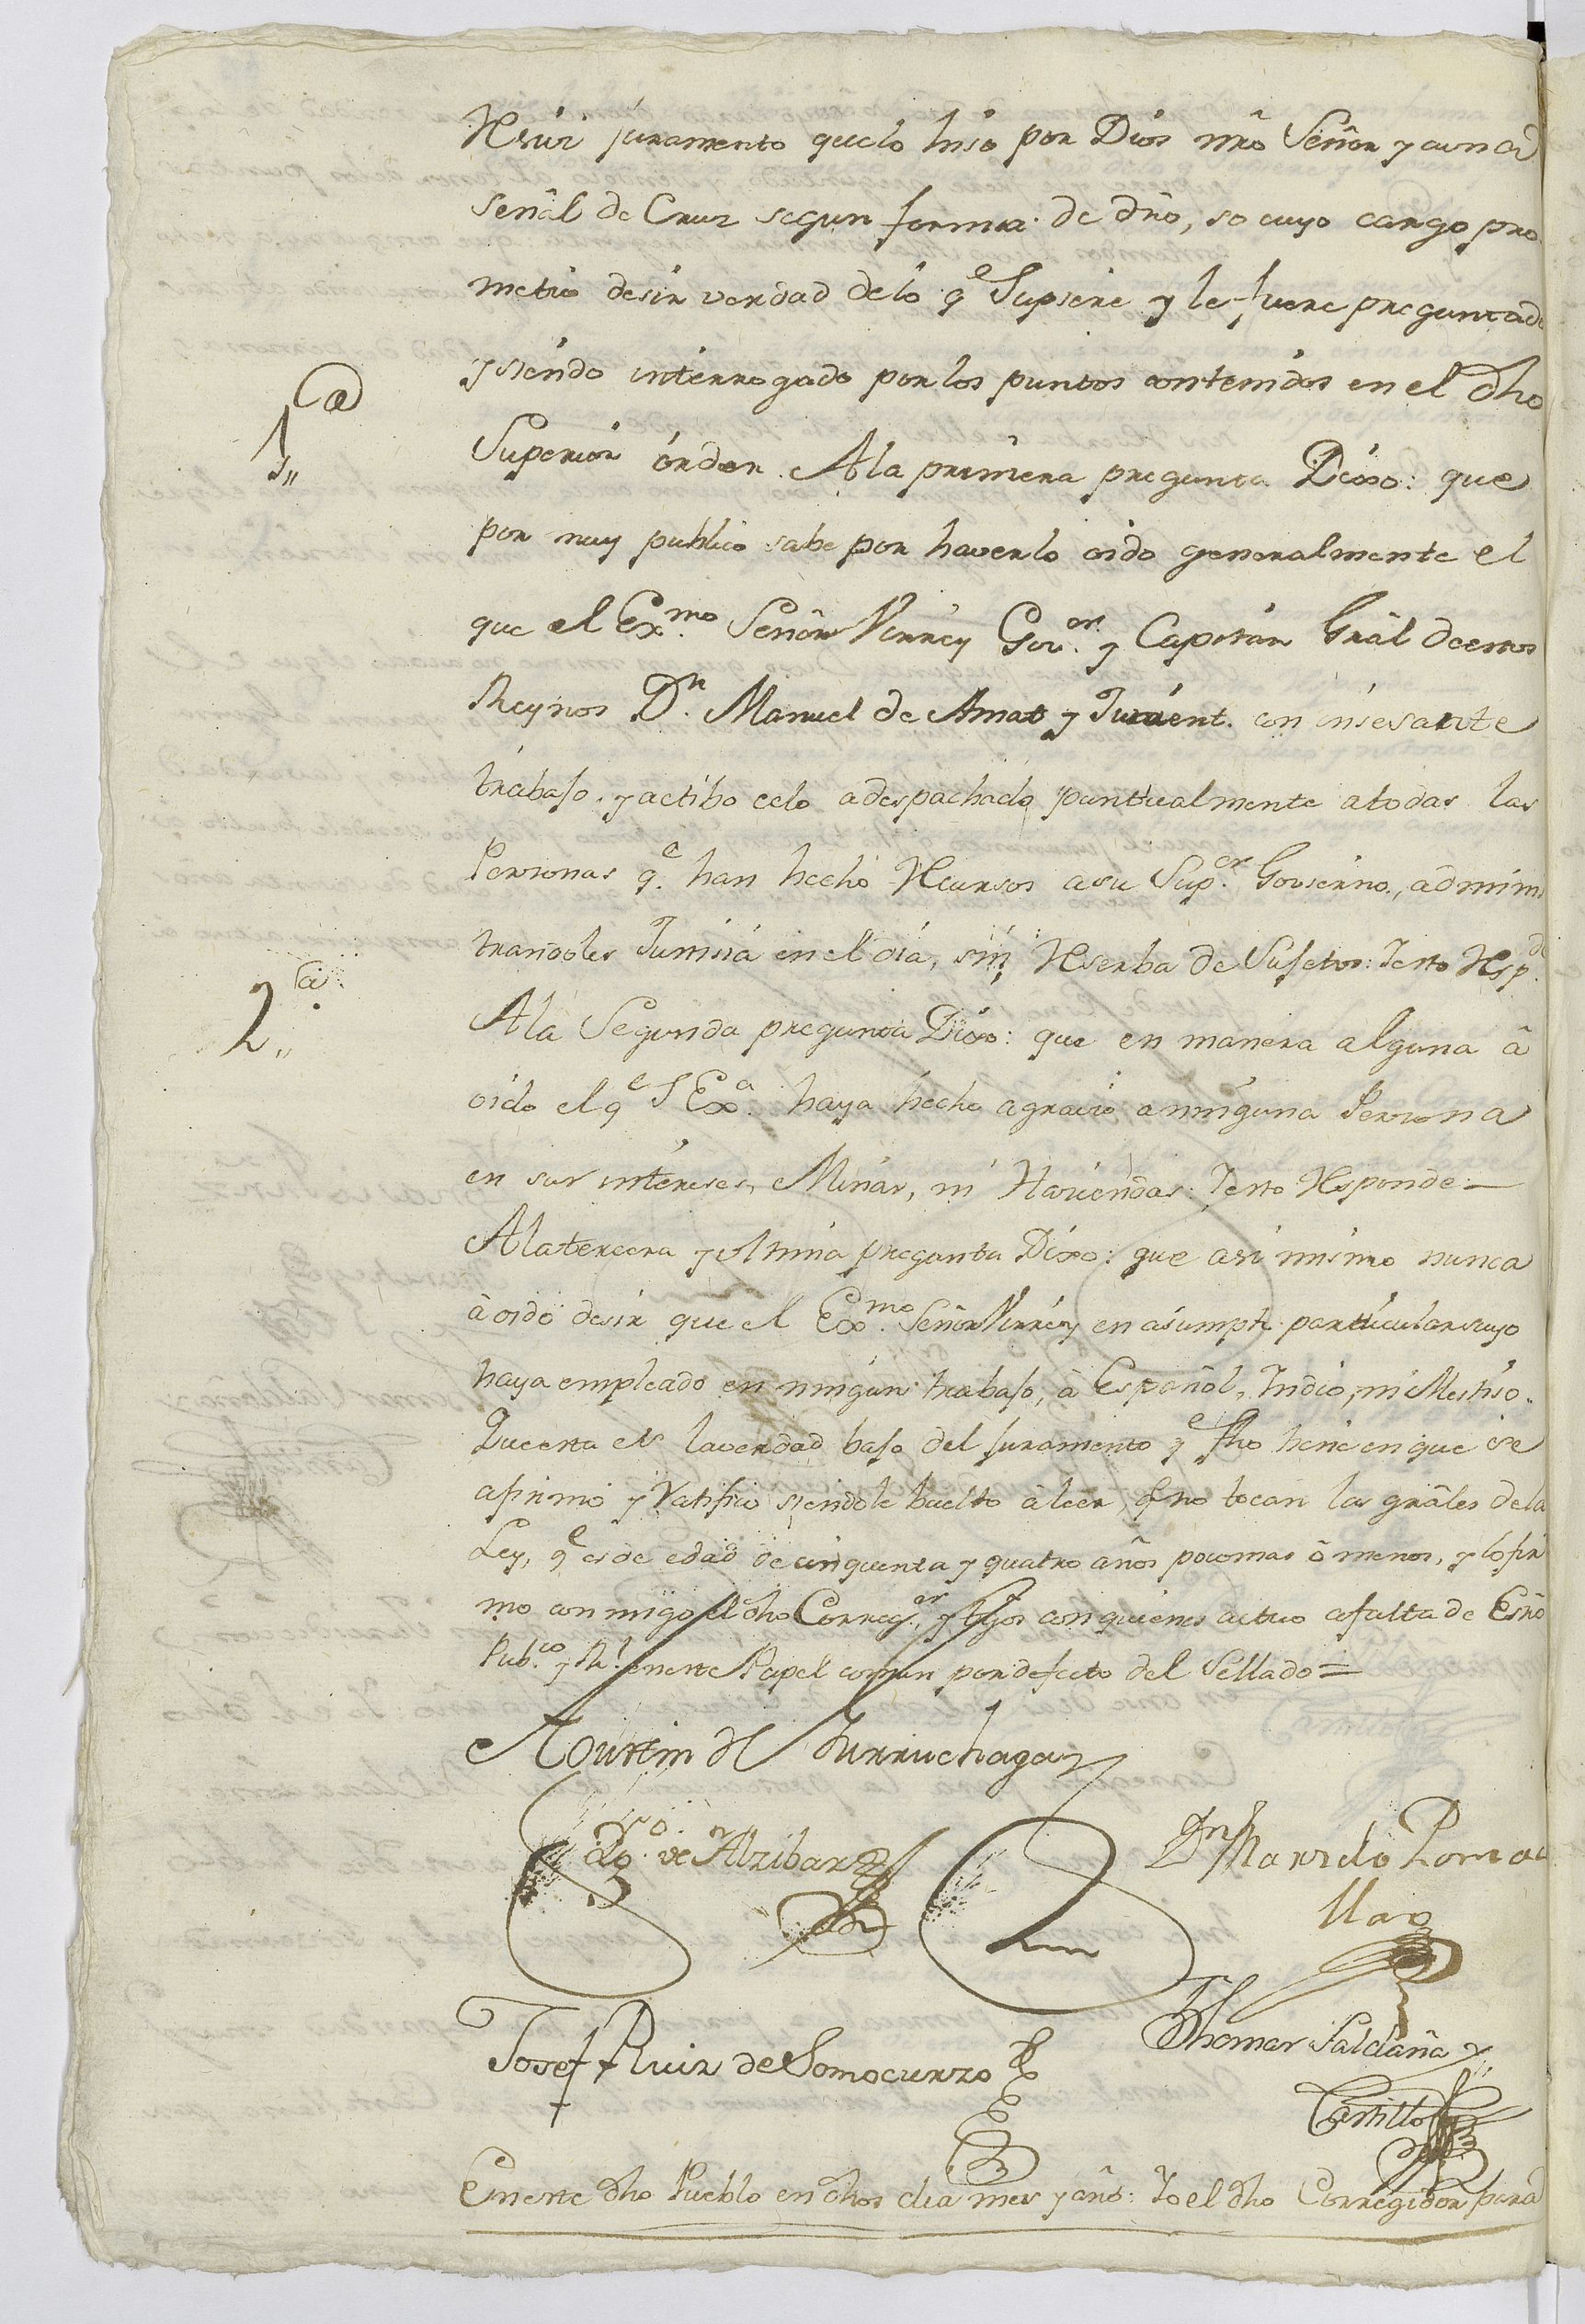 Rsivi juramento que lo hiso por Dios nrõ Señor y auna
señal de Cruz segun forma de drõ, so cuyo cargo pro
metio desir verdad delo qe Supiere y le fuere preguntado
y siendo interrogado por los puntos contenidos en el dho
1,,a
Superior orden. Ala primera pregunta Dixo: que
por muy publico sabe por haverlo oido generalmente el
que el Exmo. Señor Virrey Govor. y Capitan Grãl deestos
Reynos Dn. Manuel de Amat y Junient. con insesante
trabajo, y actibo celo a despachado puntualmente atodas las
Personas qe. han hecho Rcursos asu Supor. Govierno, admini
trandoles Justisia en el dia, sin Rserba de Sujetos: Y esto Rspde.
2,,a
Ala Segunda pregunta Dixo: que en manera alguna â
oido el qe S Exa. haya hecho agravio aninguna Persona
en sus intereses, Minas, ni Haziendas: Y esto Rsponde=
Alatercera y ultima pregunta Dixo: que asi mismo nunca
â oido desir que el Exmo. Señor Virrey en asumpto particular suyo
haya empleado en ningun trabajo, â Español, Indio, ni Mestiso.
Que esta es laverdad bajo del juramento qe fho tiene en que se
afirmó y Ratifico siendole buelto âleer, qe no tocan las grãles dela
Ley, qe es de edad de cinquenta y quatro años pocomas ô menos, y lo fir
mo conmigo el dho Corregor. y tgos con quienes actuo afalta de Esño
Pubco. y Rl. eneste Papel comun por defecto del Sellado=
Agustin de Iurruchaga
de Alzibar
Dn Marzelo Poma
llao
Josef Ruiz de Somocurzo
Thomas Saldaña y
Castillo
Eneste dho Pueblo en dhos dia mes y año: Yo el dho Corregidor para